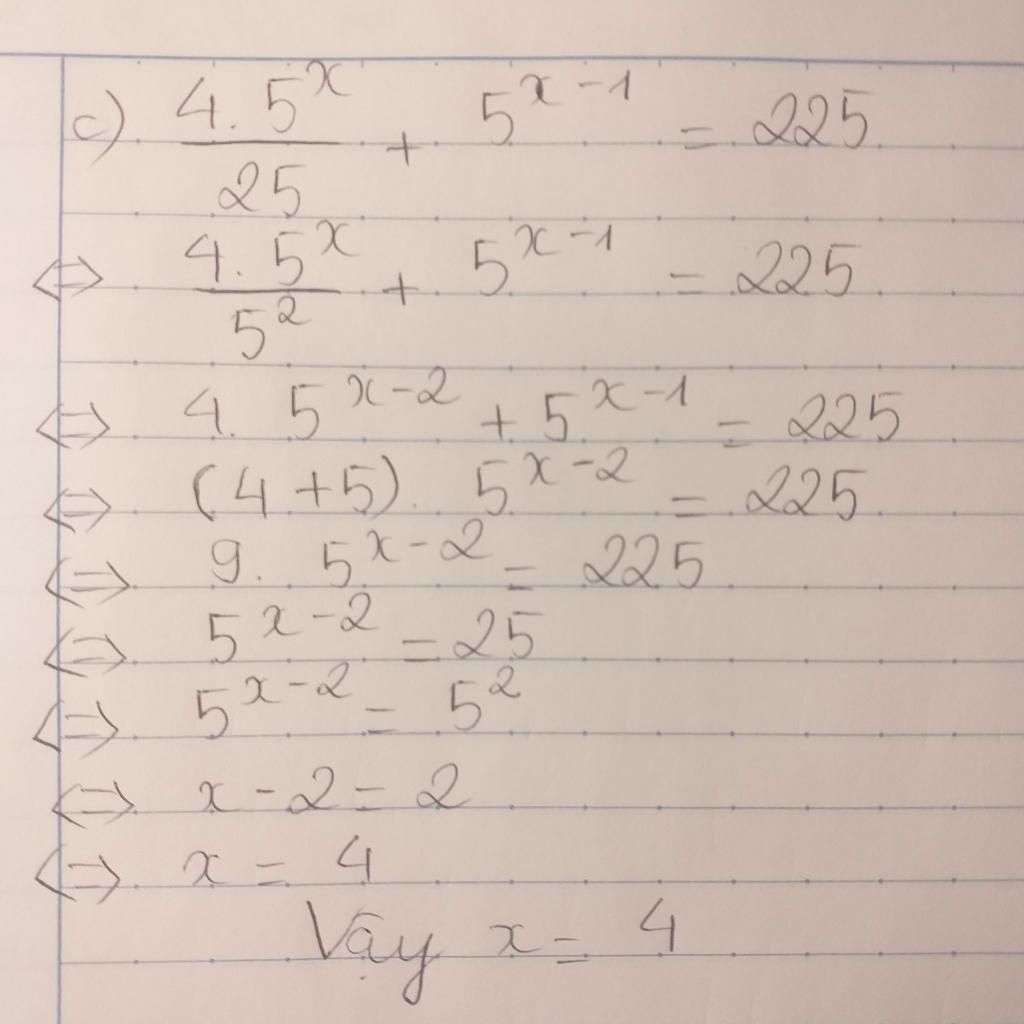 c) \frac{4.5^x}{25} + 5^{x-1} = 225
⇔ \frac{4.5^x}{5^2} + 5^{x-1} = 225
⇔ 4. 5^{x-2} + 5^{x-1} = 225
⇔ (4+5). 5^{x-2} = 225
⇔ 9. 5^{x-2} = 225
⇔ 5^{x-2} = 25
⇔ 5^{x-2} = 5^2
⇔ x-2 = 2
⇔ x = 4
Vậy x = 4